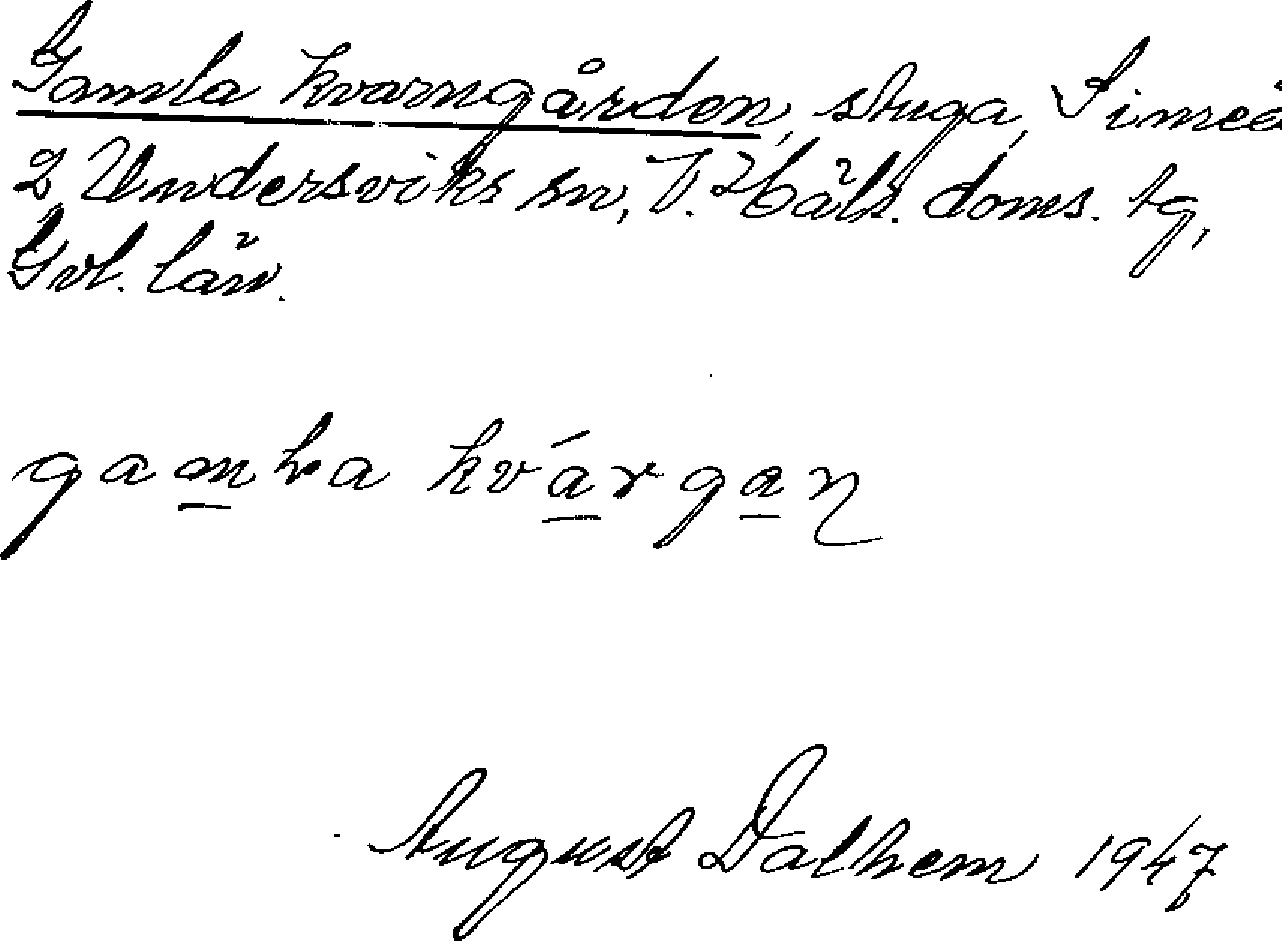 Gamla kvarngården, stuga, Simeå
2 Undersviks sn, V. Häls. doms. tg,
Gvl. län.
gamla kvárgan
August Dalhem 1947